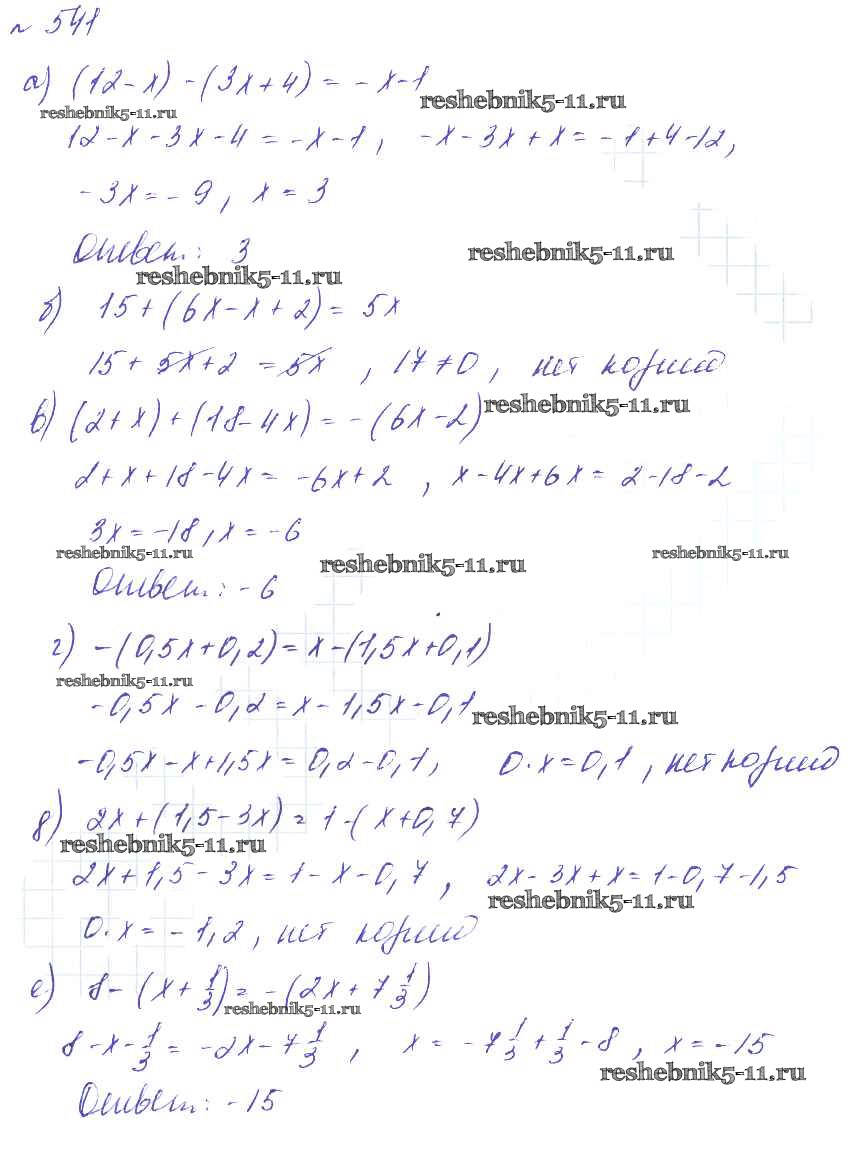 № 541
а) (12-х) - (3х+4) = -х-1
reshebnik5-11.ru
reshebnik5-11.ru
12-х-3х-4 = -х-1, -х-3х+х = -1+4-12,
-3х = -9, х = 3
Ответ: 3
reshebnik5-11.ru
reshebnik5-11.ru
б) 15+(6х-х+2) = 5х
15+5х+2 = 5х, 17≠0, нет корней
reshebnik5-11.ru
в) (2+х)+(18-4х) = -(6х-2)
2+х+18-4х = -6х+2, х-4х+6х = 2-18-2
3х = -18, х = -6
reshebnik5-11.ru
reshebnik5-11.ru
reshebnik5-11.ru
Ответ: -6
г) -(0,5х+0,2) = х-(1,5х+0,1)
reshebnik5-11.ru
-0,5х-0,2 = х-1,5х-0,1
reshebnik5-11.ru
-0,5х-х+1,5х = 0,2-0,1, 0·х = 0,1, нет корней
д) 2х+(1,5-3х) = 1-(х+0,7)
reshebnik5-11.ru
2х+1,5-3х = 1-х-0,7, 2х-3х+х = 1-0,7-1,5
reshebnik5-11.ru
0·х = -1,2, нет корней
е) 8-(х+1/3) = -(2х+7 1/3)
reshebnik5-11.ru
8-х-1/3 = -2х-7 1/3, х = -7 1/3+1/3-8, х = -15
reshebnik5-11.ru
Ответ: -15